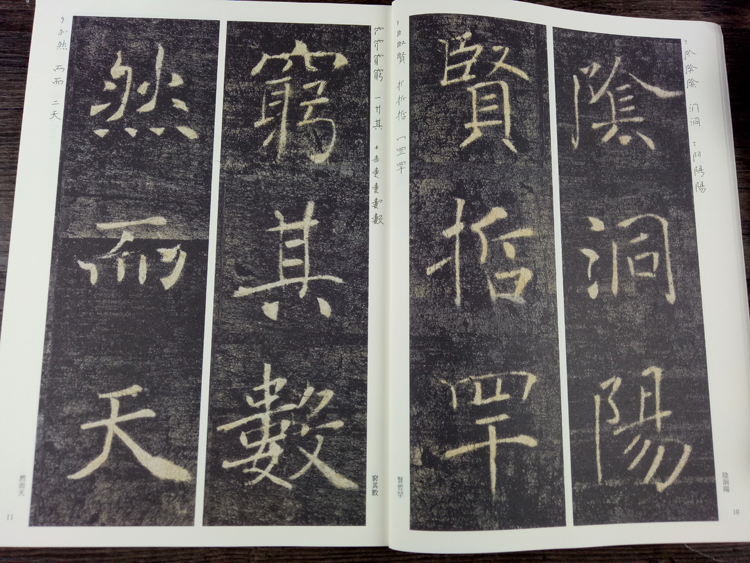 陰洞陽
賢哲罕
陰洞陽
賢哲罕
10
窮其數
然而天
窮其數
然而天
11